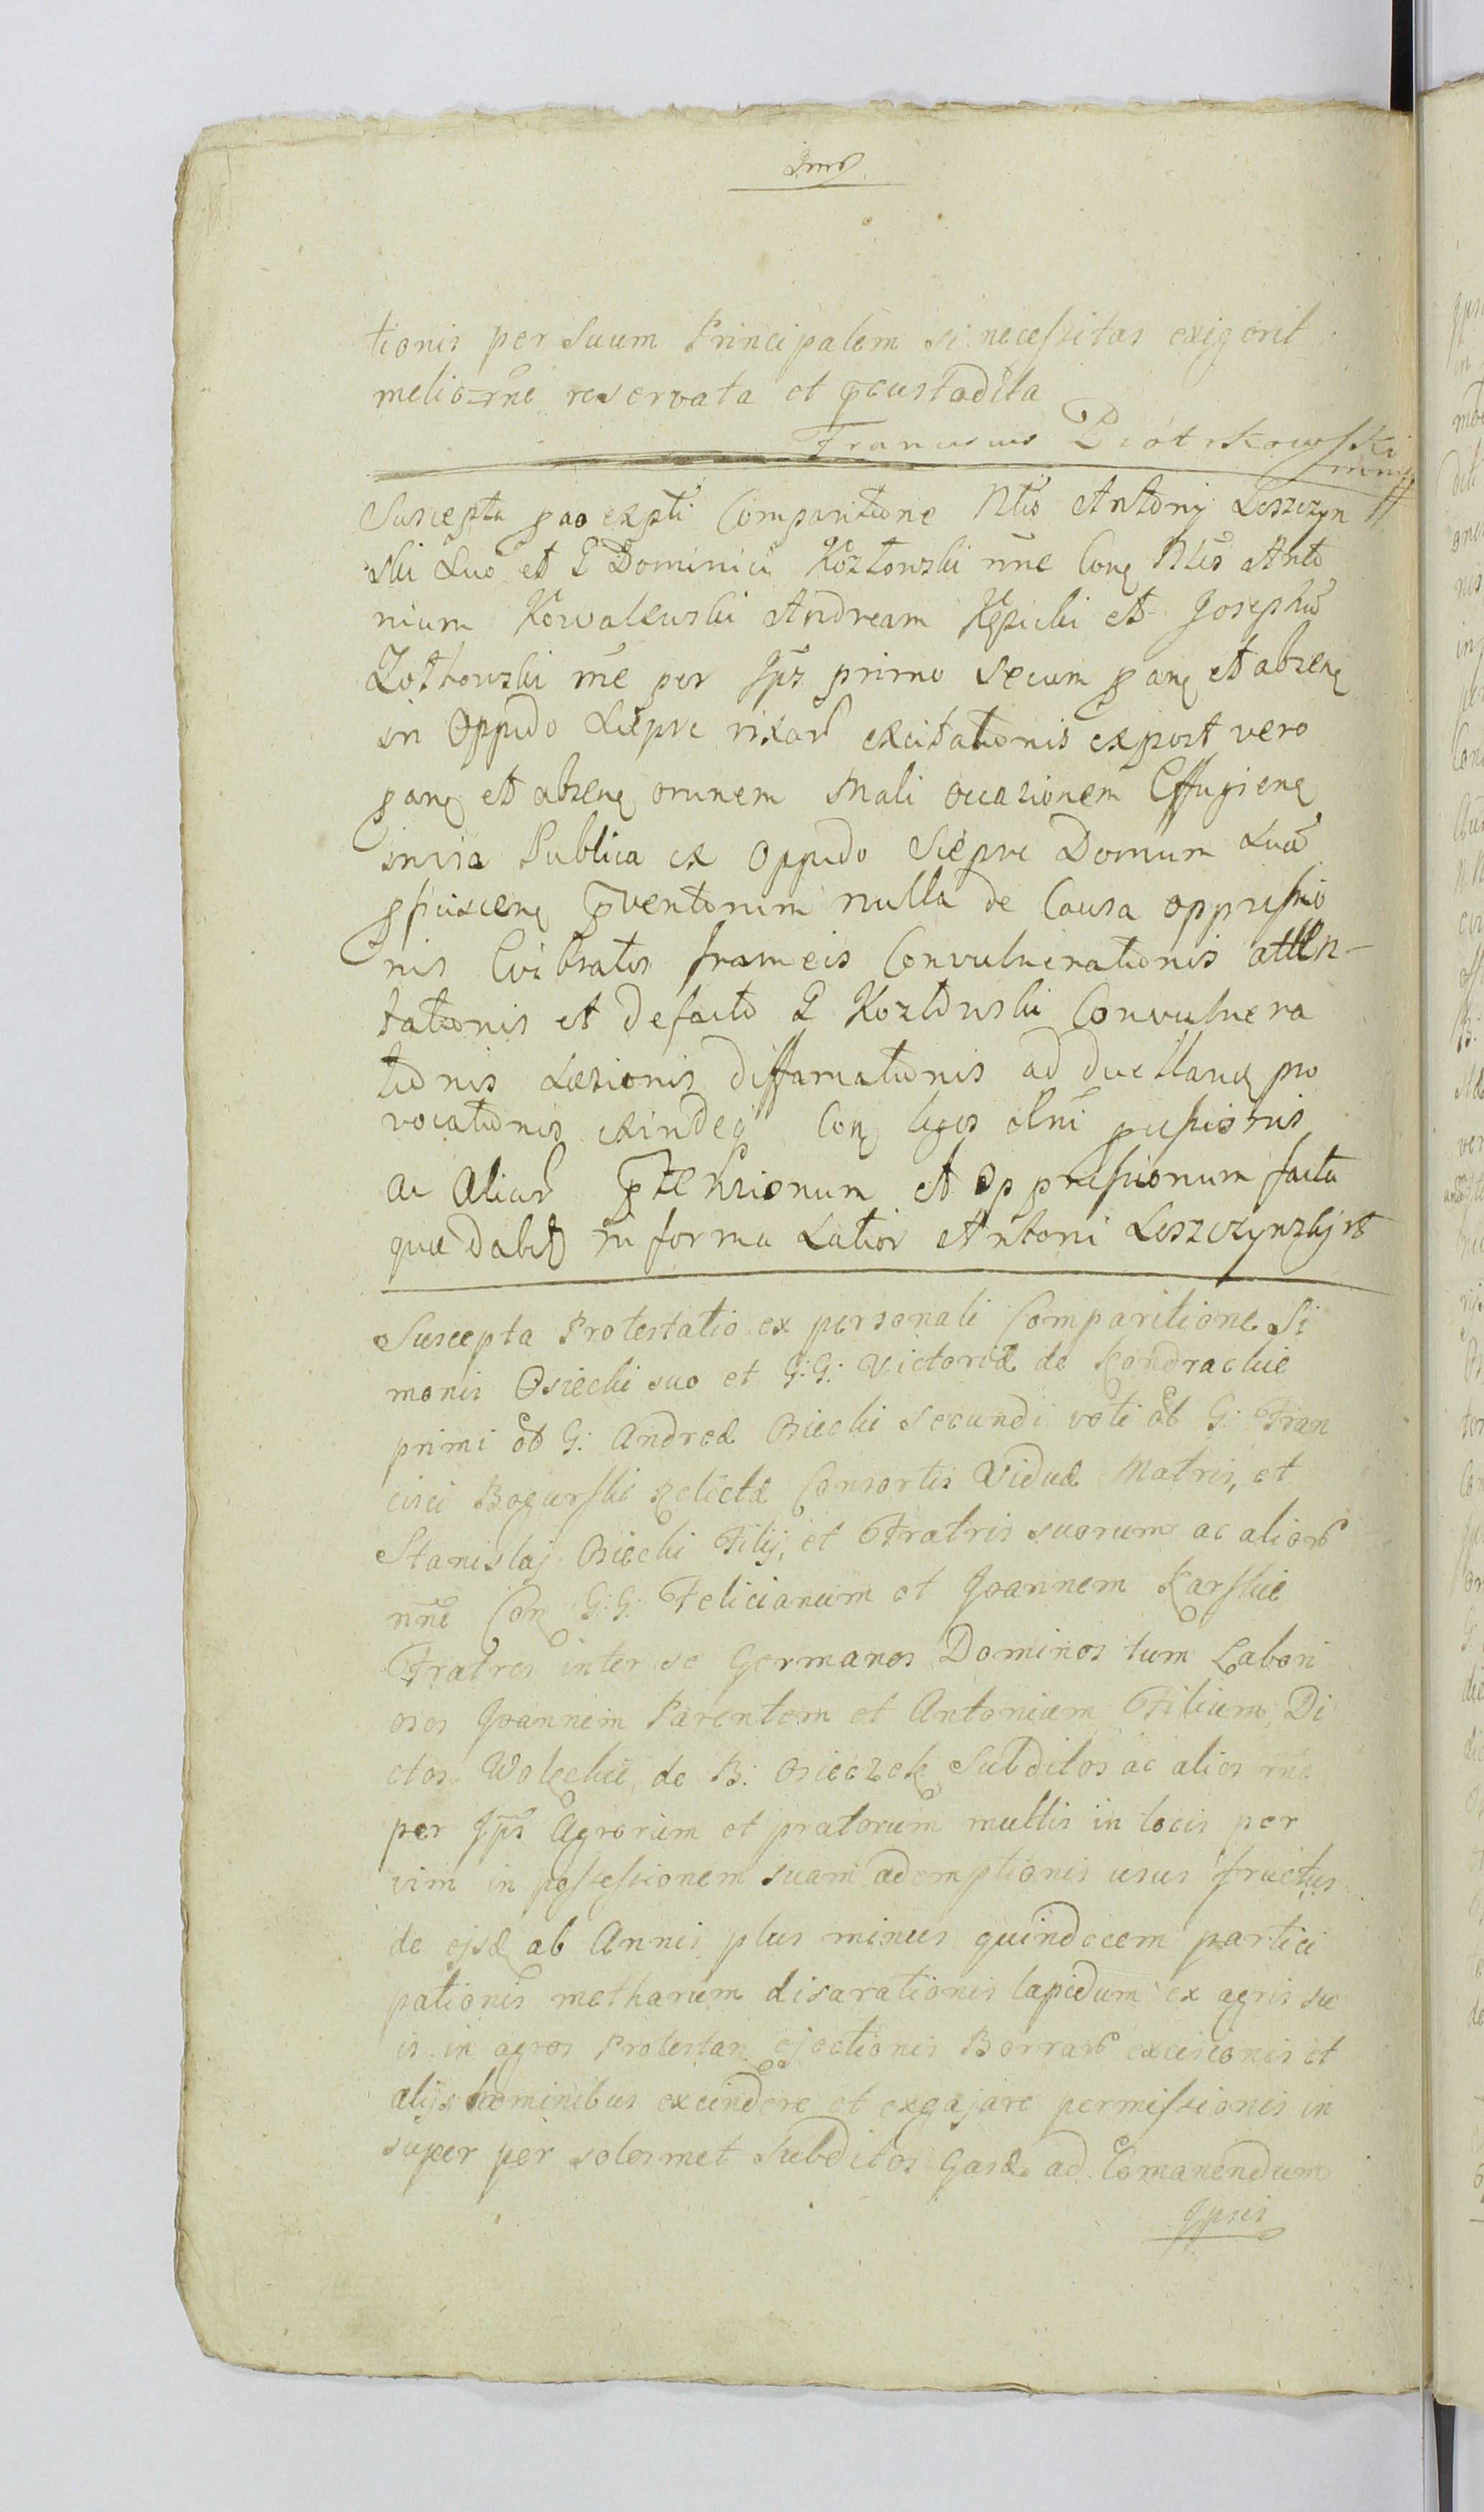 tionis per Suum Principalem si necessitas exigerit
melio=rñe reservata et p̄custodita
Franciscus Piotrkowski
mm
Suscepta exp̄ti Comparitione Nt̄is Antonij Leszczyn
ski Suo et G Dominici Kozłowski nñe Conq Nt̄is Anto
nium Kowalewski Andream Kępicki et Josephū
Zołtowski rñe per Jp̄s primo secum panq et absenq
in Oppido Siepre rixar̄ excitationis expost vero
panq et absenq omnem mali occasionem Effugienq
in via Publica ex Oppido Siepre Domum Suā
pficiscenq p̄ventorum nulla de Causa oppressio
nis Evibratis frameis Convulnerationis atten-
tationis et de facto G Kozłowski Convulnera
tionis Læsionis diffamationis ad duellanq pro
vocationis exindeq Conq leges
ac Aliar̄ p̄tensionum et oppressionum facta
quæ dabit̄ in forma Latiori Antoni Leszczynskj
Suscepta Protestatio ex personali Comparitione Si
monis Osiecki suo et G: G: Victoriæ de Kondrackie
primi ōt G: Andreæ Osiecki secundi voti ōt G: Fran
cisci Bogurski Relictæ Consortis Viduæ Matris, et
Stanislaj Osiecki Filij, et Fratris suorum ac alior̄
nñe Con G: G: Felicianum et Joannem Karskie
Fratres inter se Germanos Dominos tum Labori
osos Joannem Parentem et Antonium Filium Di
ctos Woleckie de B: Osieczek Subditos ac alios rñe
per Jp̄s Agrorum et pratorum multis in locis per
vim in possessionem suam ademptionis usus fructus
de ejsd ab Annis plus minus quindecem partici
pationis metharum disarationis lapidum ex agris su
is in agros Protestan ejectionis Borrar̄ excisionis et
alijs hominibus excindere et exgajare permissionis in
super per solesmet Subditos Gasd ad Comanendum
Jpsis